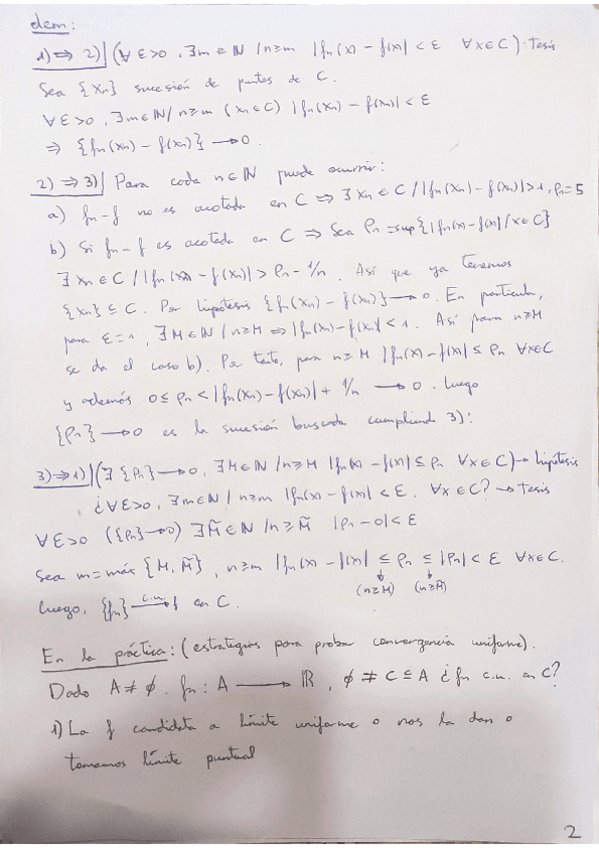 dem:
1) ⇒ 2) | (∀ ε>0, ∃m∈ℕ / n≥m |fn(x) - f(x)| < ε ∀x∈C): tesis
Sea {xn} sucesión de puntos de C.
∀ε>0, ∃m∈ℕ / n≥m (xn∈C) |fn(xn) - f(xn)| < ε
⇒ {fn(xn) - f(xn)} → 0.
2) ⇒ 3) | Para cada n∈ℕ puede ocurrir:
a) fn-f no es acotada en C ⇒ ∃ xn∈C / |fn(xn) - f(xn)| > 1, ρn=5
b) Si fn-f es acotada en C ⇒ Sea ρn = sup{|fn(x)-f(x)| / x∈C}
∃ xn∈C / |fn(xn) - f(xn)| > ρn - 1/n. Así que ya tenemos
{xn} ⊆ C. Por hipótesis {fn(xn) - f(xn)} → 0. En particular,
para ε=1, ∃M∈ℕ / n≥M ⇒ |fn(xn)-f(xn)| < 1. Así para n≥M
se da el caso b). Por tanto, para n≥M |fn(x) - f(x)| ≤ ρn ∀x∈C
y además 0 ≤ ρn < |fn(xn) - f(xn)| + 1/n → 0. Luego
{ρn} → 0 es la sucesión buscada cumpliendo 3):
3) ⇒ 1) | (∃ {ρn} → 0, ∃M∈ℕ / n≥M |fn(x) - f(x)| ≤ ρn ∀x∈C) → hipótesis
¿∀ε>0, ∃m∈ℕ / n≥m |fn(x) - f(x)| < ε. ∀x∈C? → tesis
∀ε>0 ({ρn}→0) ∃M̃∈ℕ / n≥M̃ |ρn - 0| < ε
Sea m = máx {M, M̃}, n≥m |fn(x) - f(x)| ≤ ρn ≤ |ρn| < ε ∀x∈C.
(n≥M) (n≥M̃)
Luego, {fn} —c.u.→ f en C.
En la práctica: (estrategias para probar convergencia uniforme).
Dado A≠∅. fn: A → ℝ, ∅ ≠ C ⊆ A ¿fn c.u. en C?
1) La f candidata a límite uniforme o nos la dan o
tomamos límite puntual
2